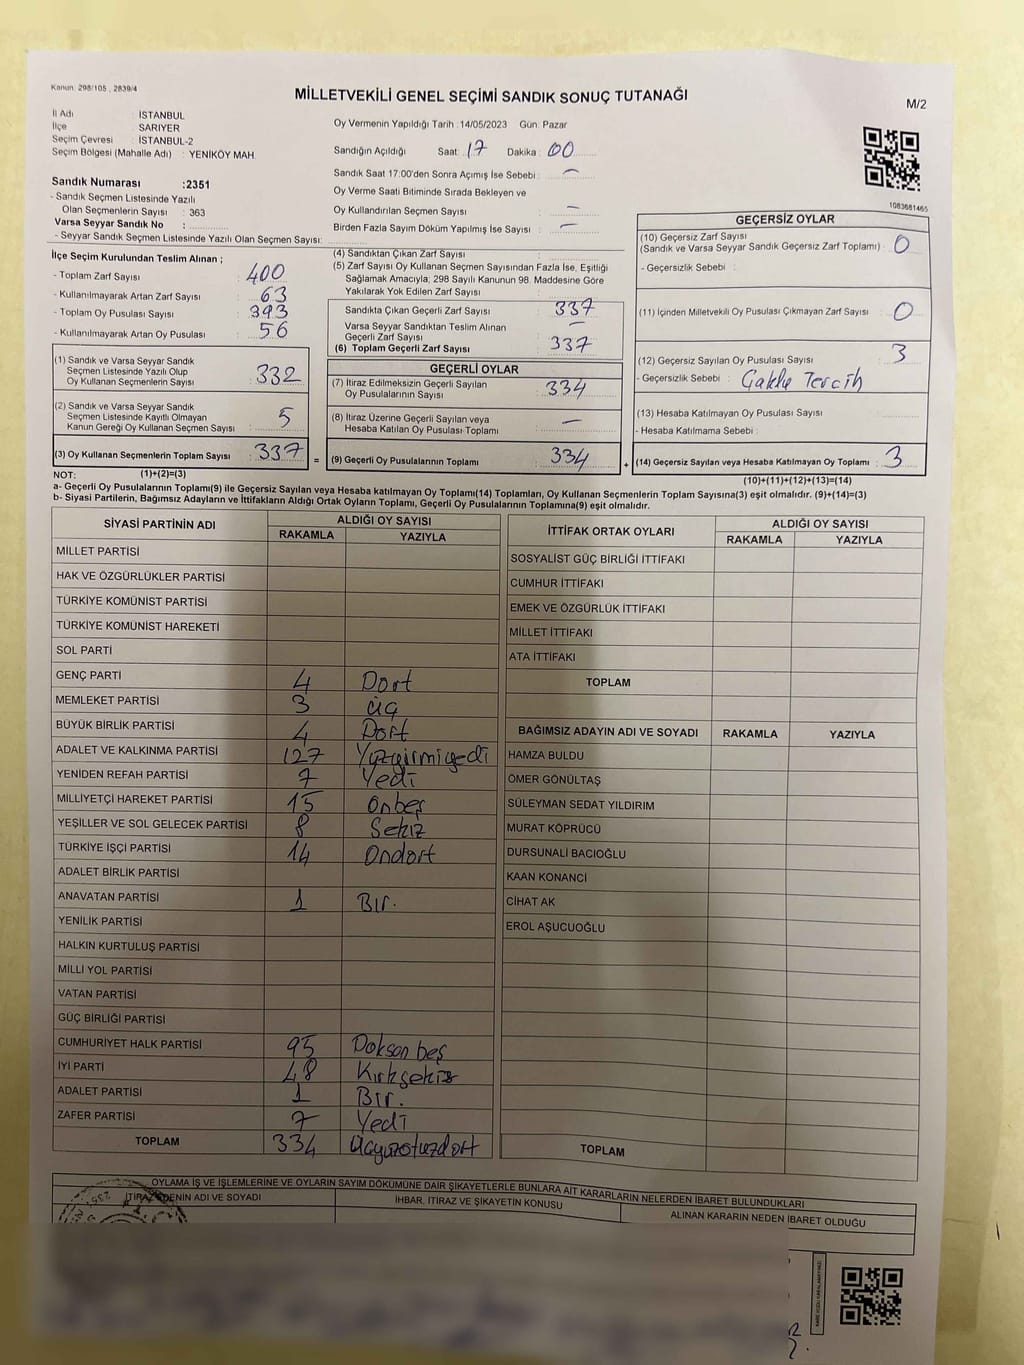 Kanun: 298/105 , 2839/4
MİLLETVEKİLİ GENEL SEÇİMİ SANDIK SONUÇ TUTANAĞI
M/2
İl Adı : İSTANBUL
İlçe : SARIYER
Seçim Çevresi : İSTANBUL-2
Seçim Bölgesi (Mahalle Adı) : YENİKÖY MAH.
Oy Vermenin Yapıldığı Tarih :14/05/2023 Gün: Pazar
Sandığın Açıldığı Saat: 17 Dakika : 00
Sandık Saat 17:00'den Sonra Açımış İse Sebebi : —
Oy Verme Saati Bitiminde Sırada Bekleyen ve
Oy Kullandırılan Seçmen Sayısı : —
Birden Fazla Sayım Döküm Yapılmış İse Sayısı : —
1083681465
Sandık Numarası :2351
- Sandık Seçmen Listesinde Yazılı
Olan Seçmenlerin Sayısı : 363
Varsa Seyyar Sandık No :
- Seyyar Sandık Seçmen Listesinde Yazılı Olan Seçmen Sayısı:
İlçe Seçim Kurulundan Teslim Alınan ;
- Toplam Zarf Sayısı : 400
- Kullanılmayarak Artan Zarf Sayısı : 63
- Toplam Oy Pusulası Sayısı : 393
- Kullanılmayarak Artan Oy Pusulası : 56
(1) Sandık ve Varsa Seyyar Sandık
Seçmen Listesinde Yazılı Olup
Oy Kullanan Seçmenlerin Sayısı : 332
(2) Sandık ve Varsa Seyyar Sandık
Seçmen Listesinde Kayıtlı Olmayan
Kanun Gereği Oy Kullanan Seçmen Sayısı : 5
(3) Oy Kullanan Seçmenlerin Toplam Sayısı : 337
(4) Sandıktan Çıkan Zarf Sayısı :
(5) Zarf Sayısı Oy Kullanan Seçmen Sayısından Fazla İse, Eşitliği
Sağlamak Amacıyla, 298 Sayılı Kanunun 98. Maddesine Göre
Yakılarak Yok Edilen Zarf Sayısı :
Sandıkta Çıkan Geçerli Zarf Sayısı : 337
Varsa Seyyar Sandıktan Teslim Alınan
Geçerli Zarf Sayısı : —
(6) Toplam Geçerli Zarf Sayısı : 337
GEÇERLİ OYLAR
(7) İtiraz Edilmeksizin Geçerli Sayılan
Oy Pusulalarının Sayısı : 334
(8) İtiraz Üzerine Geçerli Sayılan veya
Hesaba Katılan Oy Pusulası Toplamı : —
= (9) Geçerli Oy Pusulalarının Toplamı : 334
GEÇERSİZ OYLAR
(10) Geçersiz Zarf Sayısı
(Sandık ve Varsa Seyyar Sandık Geçersiz Zarf Toplamı) : 0
- Geçersizlik Sebebi :
(11) İçinden Milletvekili Oy Pusulası Çıkmayan Zarf Sayısı : 0
(12) Geçersiz Sayılan Oy Pusulası Sayısı : 3
- Geçersizlik Sebebi : Çoklu Tercih
(13) Hesaba Katılmayan Oy Pusulası Sayısı :
- Hesaba Katılmama Sebebi :
+ (14) Geçersiz Sayılan veya Hesaba Katılmayan Oy Toplamı : 3
NOT: (1)+(2)=(3)
(10)+(11)+(12)+(13)=(14)
a- Geçerli Oy Pusulalarının Toplamı(9) ile Geçersiz Sayılan veya Hesaba katılmayan Oy Toplamı(14) Toplamları, Oy Kullanan Seçmenlerin Toplam Sayısına(3) eşit olmalıdır. (9)+(14)=(3)
b- Siyasi Partilerin, Bağımsız Adayların ve İttifakların Aldığı Ortak Oyların Toplamı, Geçerli Oy Pusulalarının Toplamına(9) eşit olmalıdır.
SİYASİ PARTİNİN ADI ALDIĞI OY SAYISI
RAKAMLA YAZIYLA
MİLLET PARTİSİ
HAK VE ÖZGÜRLÜKLER PARTİSİ
TÜRKİYE KOMÜNİST PARTİSİ
TÜRKİYE KOMÜNİST HAREKETİ
SOL PARTİ
GENÇ PARTİ 4 Dört
MEMLEKET PARTİSİ 3 üç
BÜYÜK BİRLİK PARTİSİ 4 Dört
ADALET VE KALKINMA PARTİSİ 127 Yüzyirmiyedi
YENİDEN REFAH PARTİSİ 7 Yedi
MİLLİYETÇİ HAREKET PARTİSİ 15 Onbeş
YEŞİLLER VE SOL GELECEK PARTİSİ 8 Sekiz
TÜRKİYE İŞÇİ PARTİSİ 14 Ondört
ADALET BİRLİK PARTİSİ
ANAVATAN PARTİSİ 1 Bir.
YENİLİK PARTİSİ
HALKIN KURTULUŞ PARTİSİ
MİLLİ YOL PARTİSİ
VATAN PARTİSİ
GÜÇ BİRLİĞİ PARTİSİ
CUMHURİYET HALK PARTİSİ 95 Doksan beş
İYİ PARTİ 48 Kırksekiz
ADALET PARTİSİ 1 Bir.
ZAFER PARTİSİ 7 Yedi
TOPLAM 334 Üçyüzotuzdört
İTTİFAK ORTAK OYLARI ALDIĞI OY SAYISI
RAKAMLA YAZIYLA
SOSYALİST GÜÇ BİRLİĞİ İTTİFAKI
CUMHUR İTTİFAKI
EMEK VE ÖZGÜRLÜK İTTİFAKI
MİLLET İTTİFAKI
ATA İTTİFAKI
TOPLAM
BAĞIMSIZ ADAYIN ADI VE SOYADI RAKAMLA YAZIYLA
HAMZA BULDU
ÖMER GÖNÜLTAŞ
SÜLEYMAN SEDAT YILDIRIM
MURAT KÖPRÜCÜ
DURSUNALİ BACIOĞLU
KAAN KONANCİ
CİHAT AK
EROL AŞUCUOĞLU
TOPLAM
OYLAMA İŞ VE İŞLEMLERİNE VE OYLARIN SAYIM DÖKÜMÜNE DAİR ŞİKAYETLERLE BUNLARA AİT KARARLARIN NELERDEN İBARET BULUNDUKLARI
İTİRAZ EDENİN ADI VE SOYADI İHBAR, İTİRAZ VE ŞİKAYETİN KONUSU ALINAN KARARIN NEDEN İBARET OLDUĞU